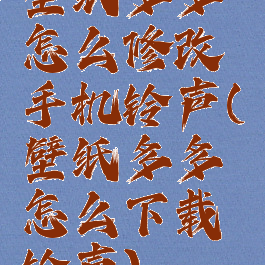 壁纸多多
怎么修改
手机铃声(
壁纸多多
怎么下载
铃声)